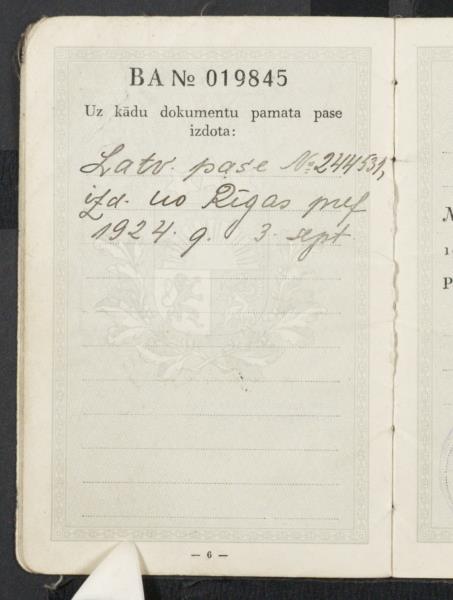 BA № 019845
Uz kādu dokumentu pamata pase
izdota:
Latv. pase № 244531,
izd. no Rīgas pref
1924. g. 3. sept.
— 6 —